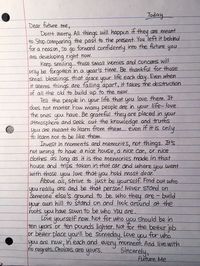 Today
Dear future me,
Don't worry. All things will happen if they are meant
to. Stop comparing the past to the present. You left it behind
for a reason, to go forward confidently into the future you
are developing right now.
Keep smiling, those small worries and concerns will
only be forgotten in a year's time. Be thankful for those
small blessings that grace your life each day. Even when
it seems things are falling apart, it takes the destruction
of all the old to build up to the new.
Tell the people in your life that you love them. It
does not matter how many people are in your life - love
the ones you have. Be grateful they are placed in your
atmosphere and seek out the knowledge and truths
you are meant to learn from them... even if it is only
to learn not to be like them.
Invest in moments and memories, not things. It's
not wrong to have a nice house, a nice car, or nice
clothes as long as it is the memories made in that
house and trips taken in that car and where you went
with those you love that you hold most dear.
Above all, strive to just be yourself. Find out who
you really are and be that person! Never stand on
someone else's ground to be who they are - build
your own hill to stand on and look around at the
roots you have sown to be who you are.
Love yourself now. Not for who you should be in
ten years or ten pounds lighter. Not for the better job
or better place you'll be someday. Love you for who
you are now, in each and every moment. And live with
no regrets. Choices are yours.
Sincerely,
Future Me